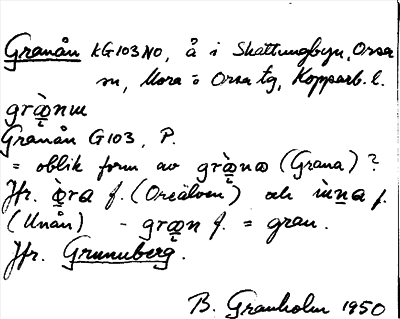 Granån kG103NO, å i Skattungbyn, Orsa
sn, Mora o Orsa tg, Kopparb. l.
Granån G103, P.
= oblik form av (Grana)?
Jfr. f. (Oreälven) och f.
(Unån) - f. = gran.
Jfr. Grunuberg.
B. Granholm 1950